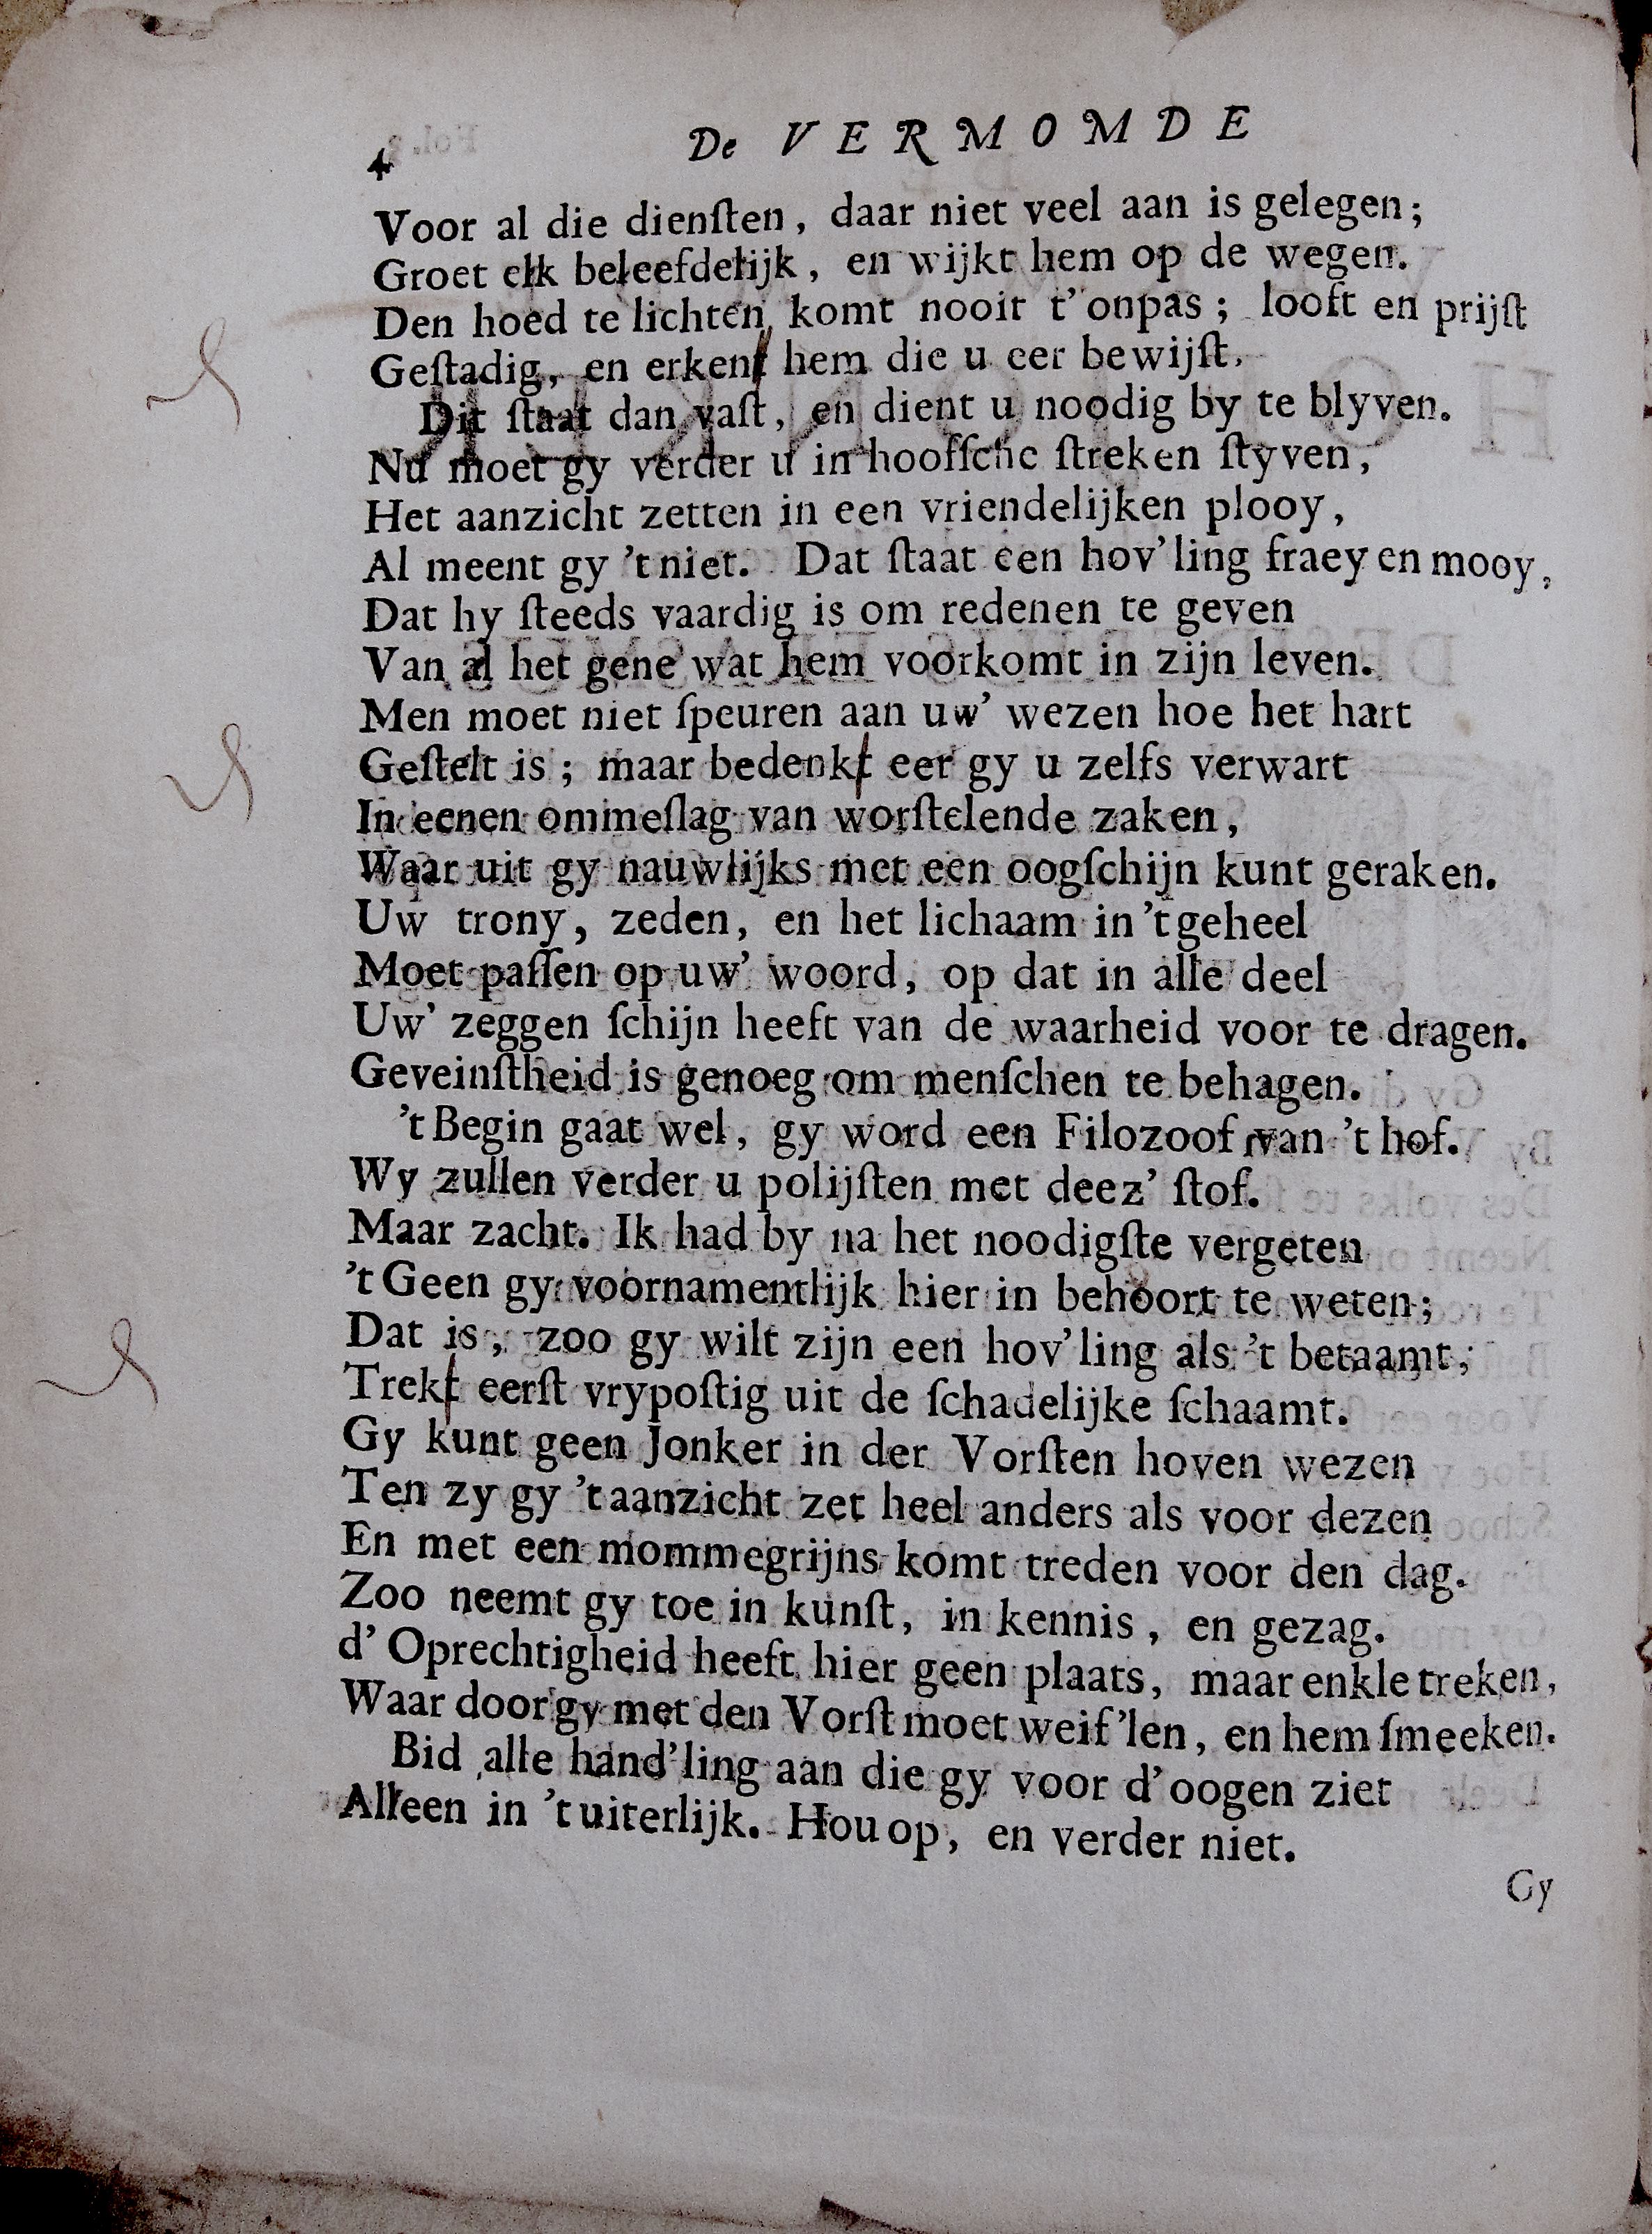 4 De VERMOMDE
Voor al die dienſten, daar niet veel aan is gelegen;
Groet elk beleefdelijk, en wijkt hem op de wegen.
Den hoed te lichten, komt nooit t'onpas; looft en prijſt
Geſtadig, en erkent hem die u eer bewijſt.
Dit ſtaat dan vaſt, en dient u noodig by te blyven.
Nu moet gy verder u in hoofſche ſtreken ſtyven,
Het aanzicht zetten in een vriendelijken plooy,
Al meent gy 't niet. Dat ſtaat een hov'ling fraey en mooy,
Dat hy ſteeds vaardig is om redenen te geven
Van al het gene wat hem voorkomt in zijn leven.
Men moet niet ſpeuren aan uw' wezen hoe het hart
Geſtelt is; maar bedenkt eer gy u zelfs verwart
In eenen ommeſlag van worſtelende zaken,
Waar uit gy nauwlijks met een oogſchijn kunt geraken.
Uw trony, zeden, en het lichaam in 't geheel
Moet paſſen op uw' woord, op dat in alle deel
Uw' zeggen ſchijn heeft van de waarheid voor te dragen.
Geveinſtheid is genoeg om menſchen te behagen.
't Begin gaat wel, gy word een Filozoof van 't hof.
Wy zullen verder u polijſten met deez' ſtof.
Maar zacht. Ik had by na het noodigſte vergeten
't Geen gy voornamentlijk hier in behoort te weten;
Dat is, zoo gy wilt zijn een hov'ling als 't betaamt,
Trekt eerſt vrypoſtig uit de ſchadelijke ſchaamt.
Gy kunt geen Jonker in der Vorſten hoven wezen
Ten zy gy 't aanzicht zet heel anders als voor dezen
En met een mommegrijns komt treden voor den dag.
Zoo neemt gy toe in kunſt, in kennis, en gezag.
d' Oprechtigheid heeft hier geen plaats, maar enkle treken,
Waar door gy met den Vorſt moet weif'len, en hem ſmeeken.
Bid alle hand'ling aan die gy voor d'oogen ziet
Alleen in 't uiterlijk. Hou op, en verder niet.
Gy